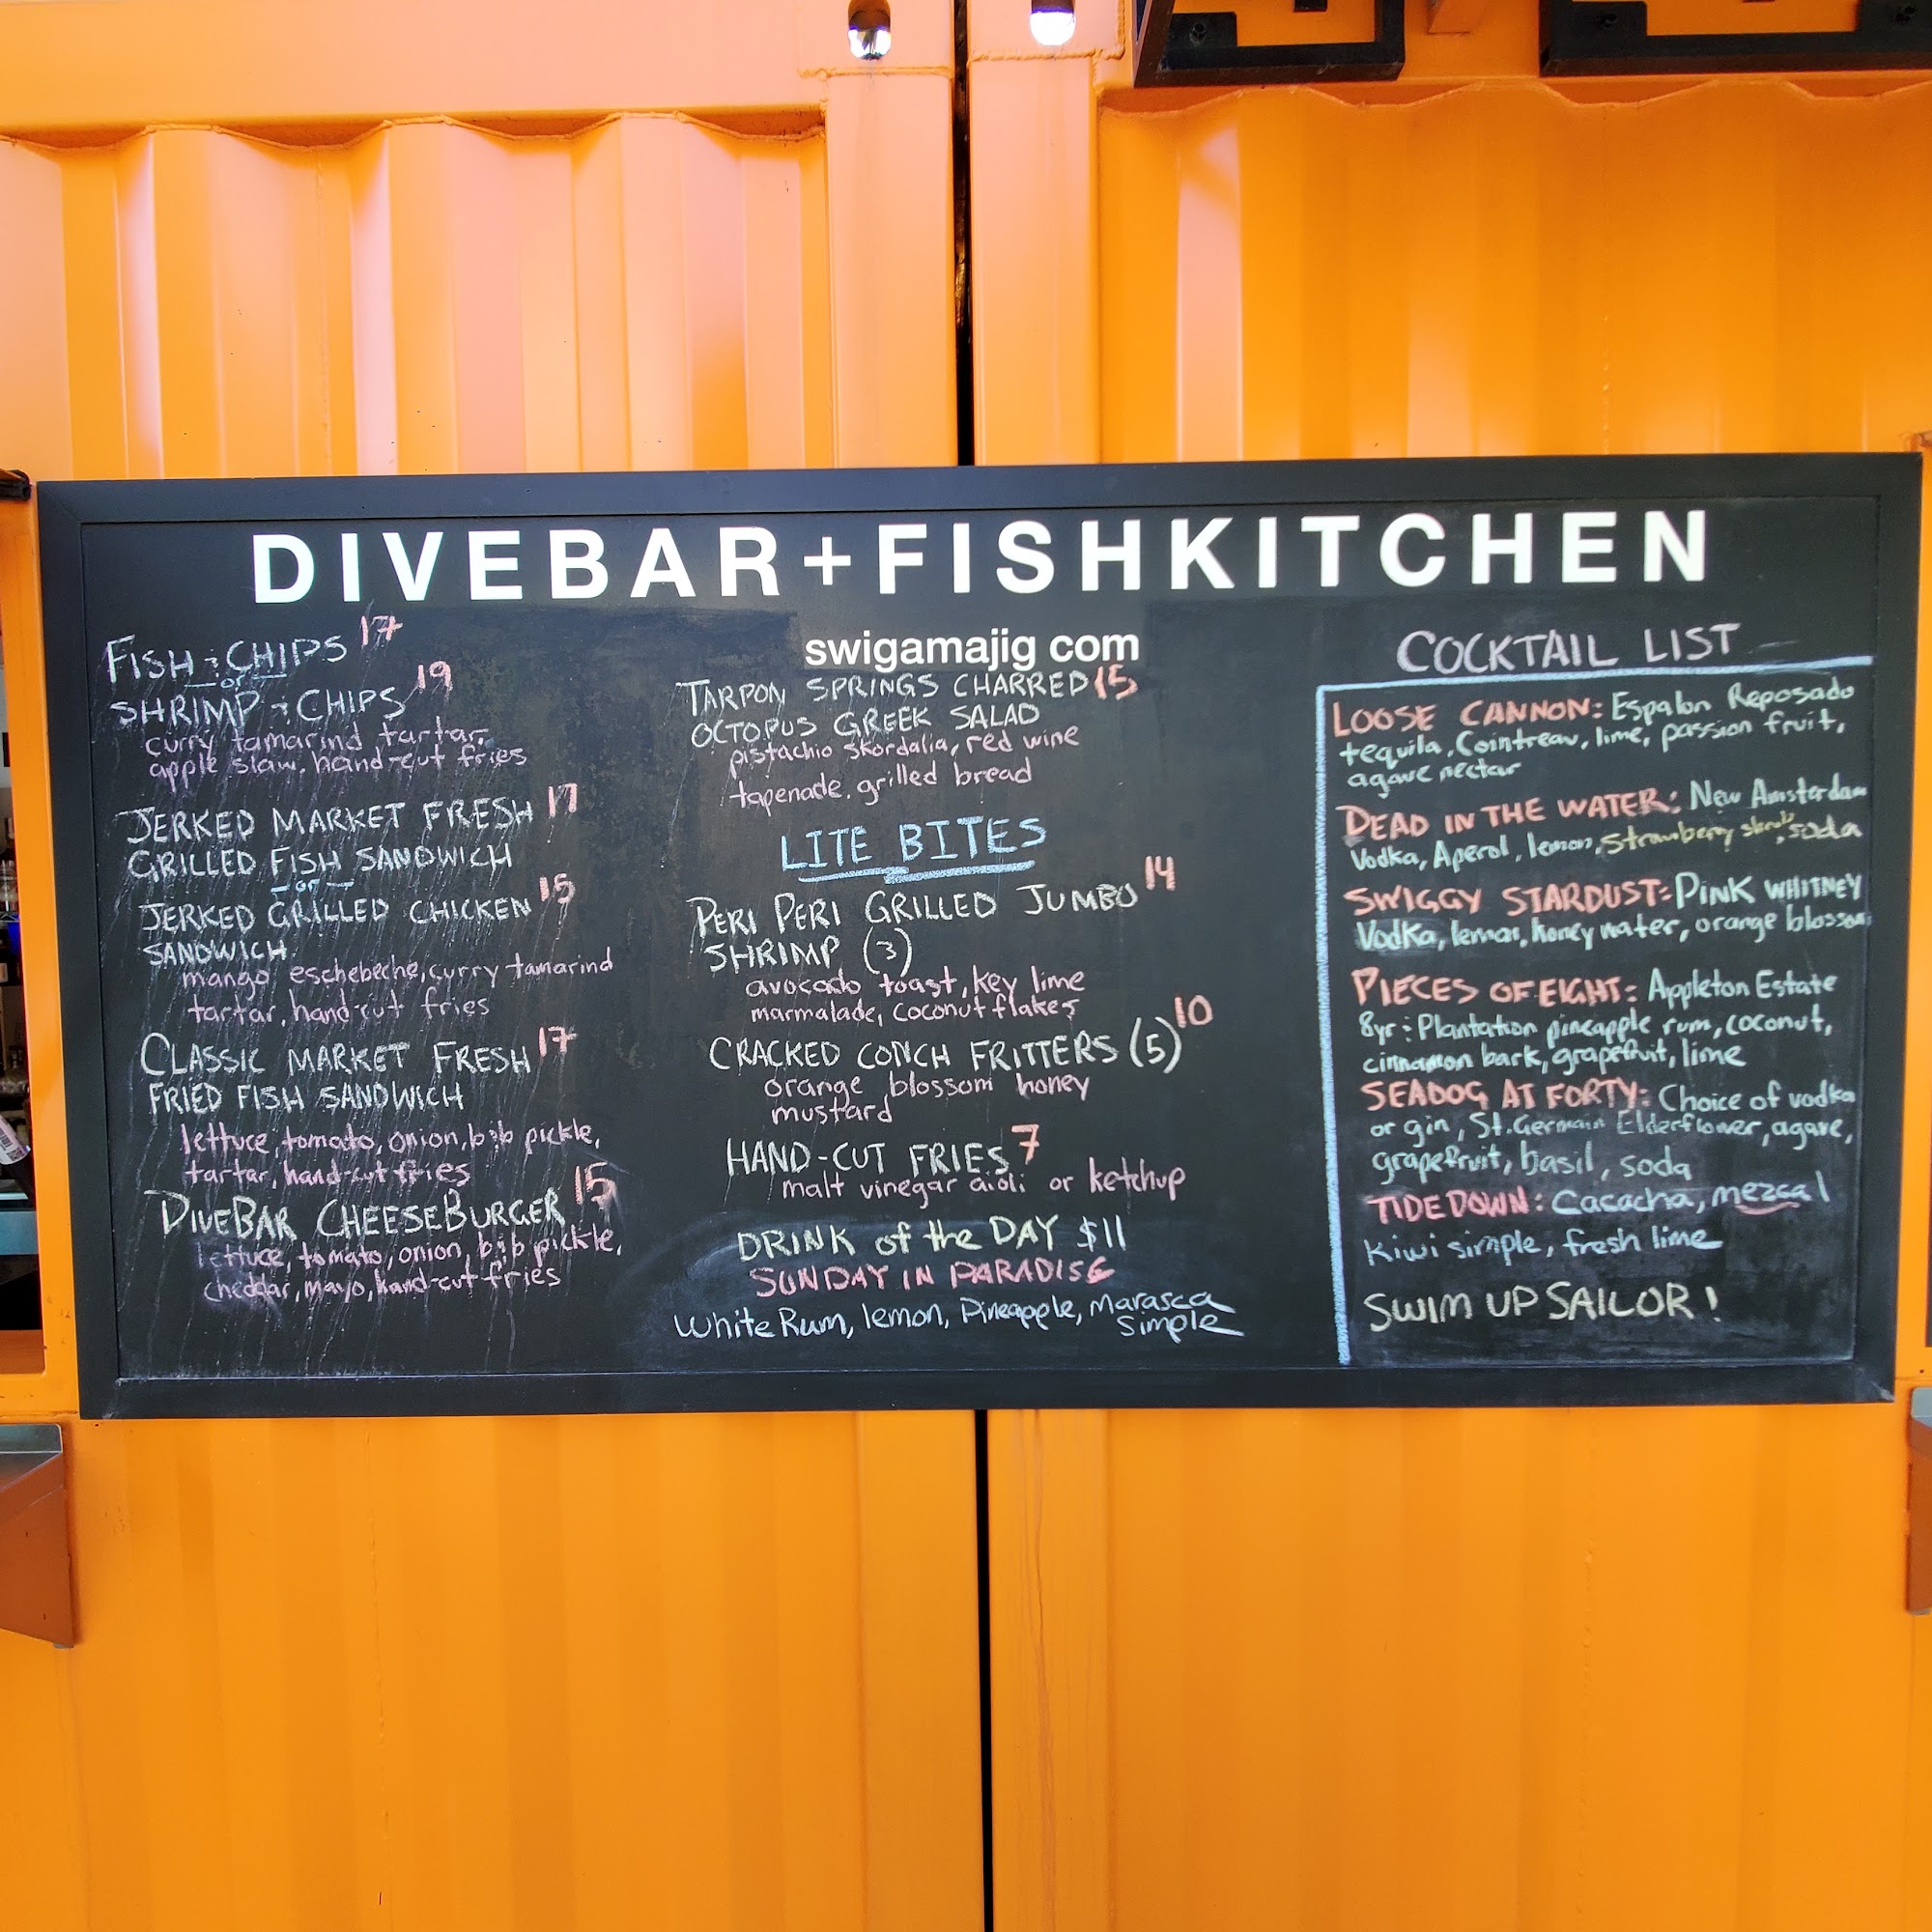 DIVEBAR+FISHKITCHEN
swigamajig com
FISH & CHIPS 17
-or-
SHRIMP & CHIPS 19
curry tamarind tartar,
apple slaw, hand-cut fries
JERKED MARKET FRESH 17
GRILLED FISH SANDWICH
-or-
JERKED GRILLED CHICKEN 15
SANDWICH
mango eschebeche, curry tamarind
tartar, hand-cut fries
CLASSIC MARKET FRESH 17
FRIED FISH SANDWICH
lettuce, tomato, onion, b&b pickle,
tartar, hand-cut fries
DIVEBAR CHEESEBURGER 15
lettuce, tomato, onion, b&b pickle,
cheddar, mayo, hand-cut fries
TARPON SPRINGS CHARRED 15
OCTOPUS GREEK SALAD
pistachio skordalia, red wine
tapenade, grilled bread
LITE BITES
PERI PERI GRILLED JUMBO 14
SHRIMP (3)
avocado toast, key lime
marmalade, coconut flakes
CRACKED CONCH FRITTERS (5) 10
orange blossom honey
mustard
HAND-CUT FRIES 7
malt vinegar aioli or ketchup
DRINK of the DAY $11
SUNDAY IN PARADISE
White Rum, lemon, Pineapple, Marasca
Simple
COCKTAIL LIST
LOOSE CANNON: Espalon Reposado
tequila, Cointreau, lime, passion fruit,
agave nectar
DEAD IN THE WATER: New Amsterdam
Vodka, Aperol, lemon, Strawberry shrub, soda
SWIGGY STARDUST: PINK WHITNEY
Vodka, lemon, honey water, orange blossom
PIECES OF EIGHT: Appleton Estate
8yr & Plantation pineapple rum, coconut,
cinnamon bark, grapefruit, lime
SEADOG AT FORTY: Choice of vodka
or gin, St. Germain Elderflower, agave,
grapefruit, basil, soda
TIDE DOWN: Cacacha, mezcal
Kiwi simple, fresh lime
SWIM UP SAILOR!